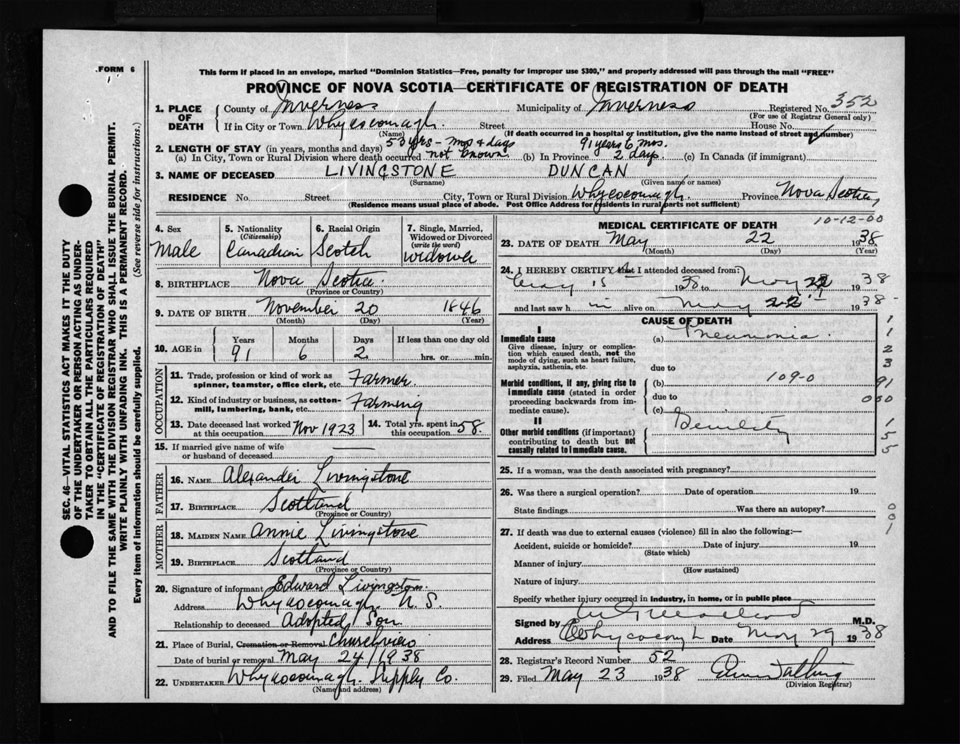 FORM 6
This form if placed in an envelope, marked "Dominion Statistics—Free, penalty for improper use $300," and properly addressed will pass through the mail "FREE"
PROVINCE OF NOVA SCOTIA—CERTIFICATE OF REGISTRATION OF DEATH
1. PLACE OF DEATH County of Inverness Municipality of Inverness Registered No. 352
(For use of Registrar General only)
If in City or Town Whycocomagh Street House No.
(Name) (If death occurred in a hospital or institution, give the name instead of street and number)
2. LENGTH OF STAY (in years, months and days) 53 yrs - mos 4 days 91 years 6 mos.
(a) In City, Town or Rural Division where death occurred not known (b) In Province 2 days. (c) In Canada (if immigrant)
3. NAME OF DECEASED LIVINGSTONE DUNCAN
(Surname) (Given name or names)
RESIDENCE No. Street City, Town or Rural Division Whycocomagh. Province Nova Scotia,
(Residence means usual place of abode. Post Office Address for residents in rural parts not sufficient)
4. Sex Male
5. Nationality (Citizenship) Canadian
6. Racial Origin Scotch
7. Single, Married, Widowed or Divorced (write the word) widower
8. BIRTHPLACE Nova Scotia
(Province or Country)
9. DATE OF BIRTH November 20 1846
(Month) (Day) (Year)
10. AGE in Years 91 Months 6 Days 2 If less than one day old hrs. or min.
OCCUPATION
11. Trade, profession or kind of work as spinner, teamster, office clerk, etc. Farmer
12. Kind of industry or business, as cotton-mill, lumbering, bank, etc. Farming
13. Date deceased last worked at this occupation Nov 1923 14. Total yrs. spent in this occupation 58.
15. If married give name of wife or husband of deceased
FATHER
16. NAME Alexander Livingstone
17. BIRTHPLACE Scotland
(Province or Country)
MOTHER
18. MAIDEN NAME Annie Livingstone
19. BIRTHPLACE Scotland
(Province or Country)
20. Signature of informant Edward Livingston.
Address Whycocomagh. N.S.
Relationship to deceased Adopted Son.
21. Place of Burial, Cremation or Removal Churchview
Date of burial or removal May 24/1938
22. UNDERTAKER Whycocomagh Supply Co.
(Name and address)
MEDICAL CERTIFICATE OF DEATH
10-12-00
23. DATE OF DEATH May 22 1938
(Month) (Day) (Year)
24. I HEREBY CERTIFY that I attended deceased from:
May 15 1938 to May 22 1938
and last saw him alive on May 22 1938
CAUSE OF DEATH
I
Immediate cause (a) Pneumonia
Give disease, injury or complication which caused death, not the mode of dying, such as heart failure, asphyxia, asthenia, etc.
due to
Morbid conditions, if any, giving rise to immediate cause (stated in order proceeding backwards from immediate cause). (b) 109-0
due to
(c)
II
Other morbid conditions (if important) contributing to death but not causally related to immediate cause. Senility
25. If a woman, was the death associated with pregnancy?
26. Was there a surgical operation? Date of operation 19
State findings Was there an autopsy?
27. If death was due to external causes (violence) fill in also the following:—
Accident, suicide or homicide? Date of injury 19
(State which)
Manner of injury
(How sustained)
Nature of injury
Specify whether injury occurred in industry, in home, or in public place
Signed by M.D.
Address Whycocomagh Date May 29 1938
28. Registrar's Record Number 52
29. Filed May 23 1938
(Division Registrar)
1
1
2
3
91
000
1
5
5
001
SEC. 46—VITAL STATISTICS ACT MAKES IT THE DUTY
OF THE UNDERTAKER OR PERSON ACTING AS UNDER-
TAKER TO OBTAIN ALL THE PARTICULARS REQUIRED
IN THE "CERTIFICATE OF REGISTRATION OF DEATH"
AND TO FILE THE SAME WITH THE DIVISION REGISTRAR WHO SHALL ISSUE THE BURIAL PERMIT.
WRITE PLAINLY WITH UNFADING INK. THIS IS A PERMANENT RECORD.
Every item of information should be carefully supplied. (See reverse side for instructions.)